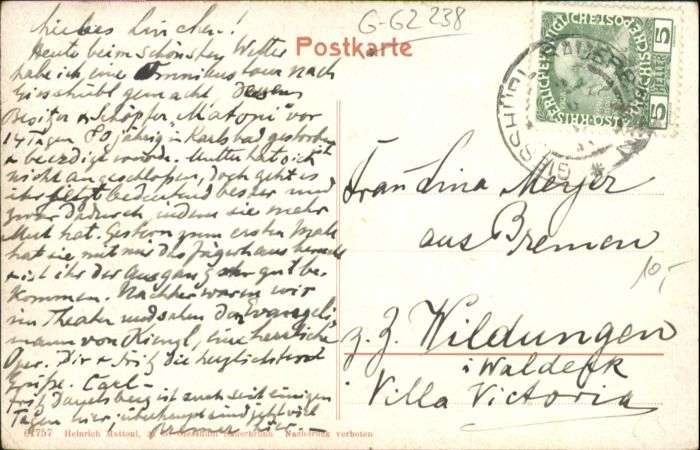 G-G2 238
Postkarte
Liebes Linchen!
Heute beim schönsten Wetter
habe ich eine Omnibustour nach
Giesshübl gemacht dessen
Besitzer & Schöpfer "Matoni" vor
14 Tagen 80 jährig in Karlsbad gestorben
& beerdigt wurde. Mutter hat sich
nicht angeschloßen, doch geht es
ihr jetzt bedeutend besser und
zwar dadurch, indem sie mehr
Mut hat. Gestern zum ersten Male
hat sie mit mir das Jägerhaus
& ist ihr der Ausgang sehr gut be-
kommen. Nachher waren wir
im Theater und sahen den Evangeli-
mann von Kienzl, eine herrliche
Oper. Dir & Fritz die herzlichsten
Grüße. Carl-
Fritz ist auch seit einigen
Tagen hier, überhaupt sind jetzt viel
Bremer hier.-
Frau Lina Meyer
aus Bremen
z. Z. Wildungen
i Waldeck
Villa Victoria
10,-
5 HELLER 5
61757 Heinrich Mattoni, Giesshübl Sauerbrunn Nachdruck verboten